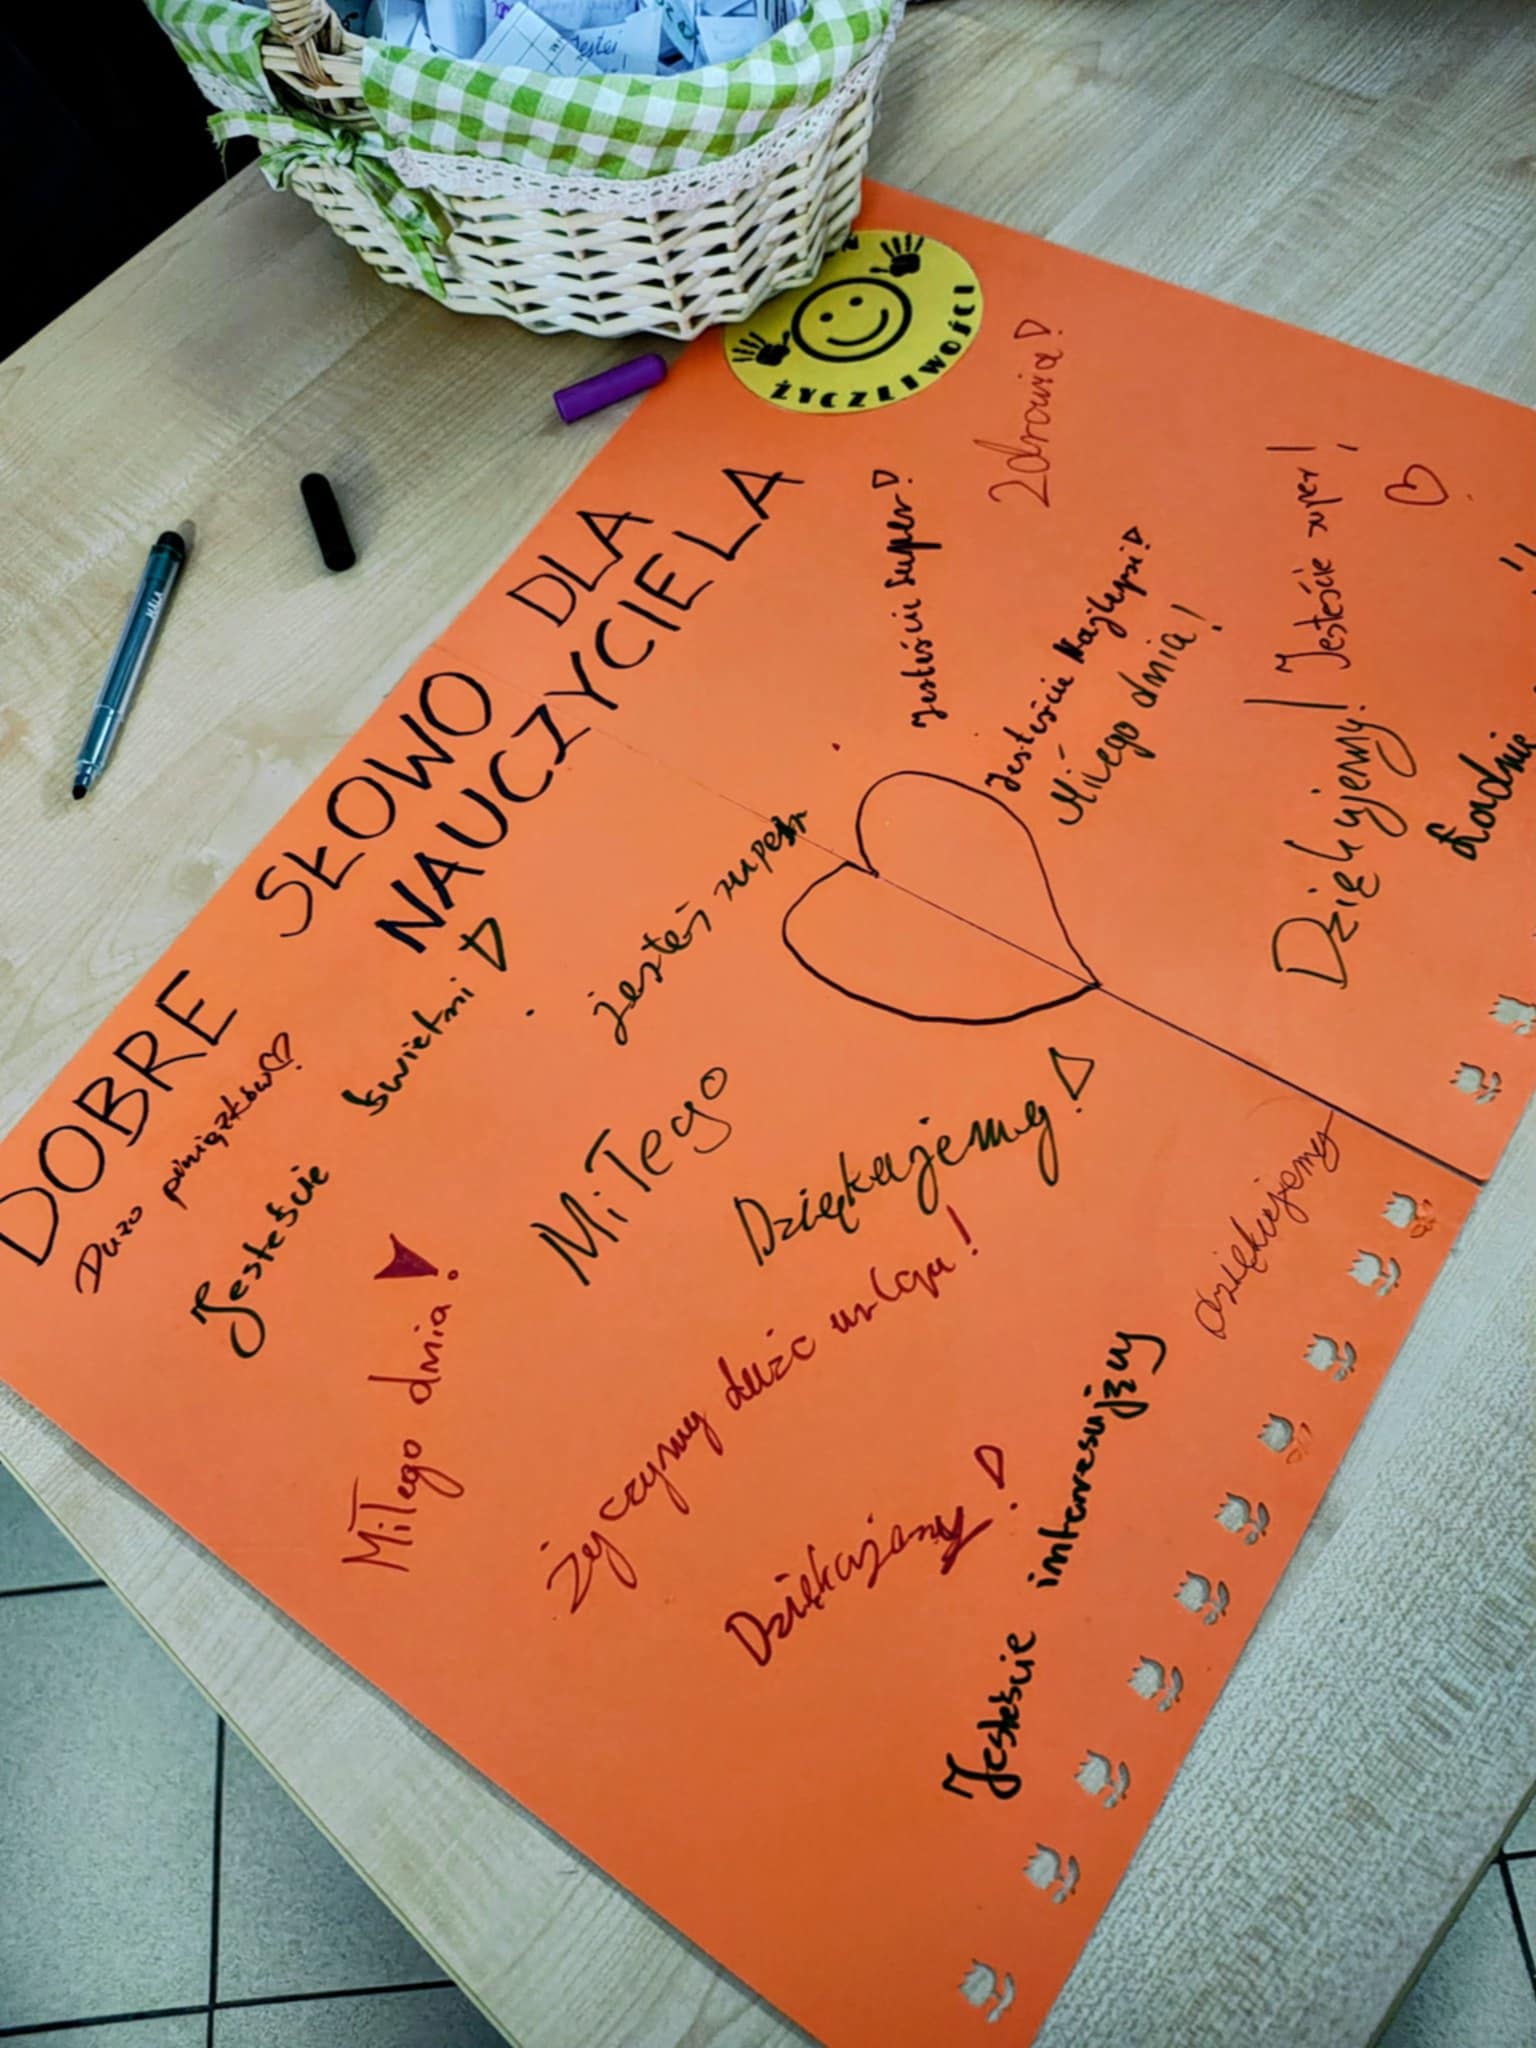 DOBRE SŁOWO DLA
NAUCZYCIELA
ŻYCZLIWOŚCI
Zdrowia!
Jesteście super!
Jesteście Najlepsi!
Miłego dnia!
Dziękujemy! Jesteście super!
Ładnie
Dużo pieniązków!
Jesteście świetni!
jesteś super
Miłego
Dziękujemy!
Miłego dnia!
życzymy dużo
Dziękujemy!
Jesteście interesujący
dziękujemy
MILA